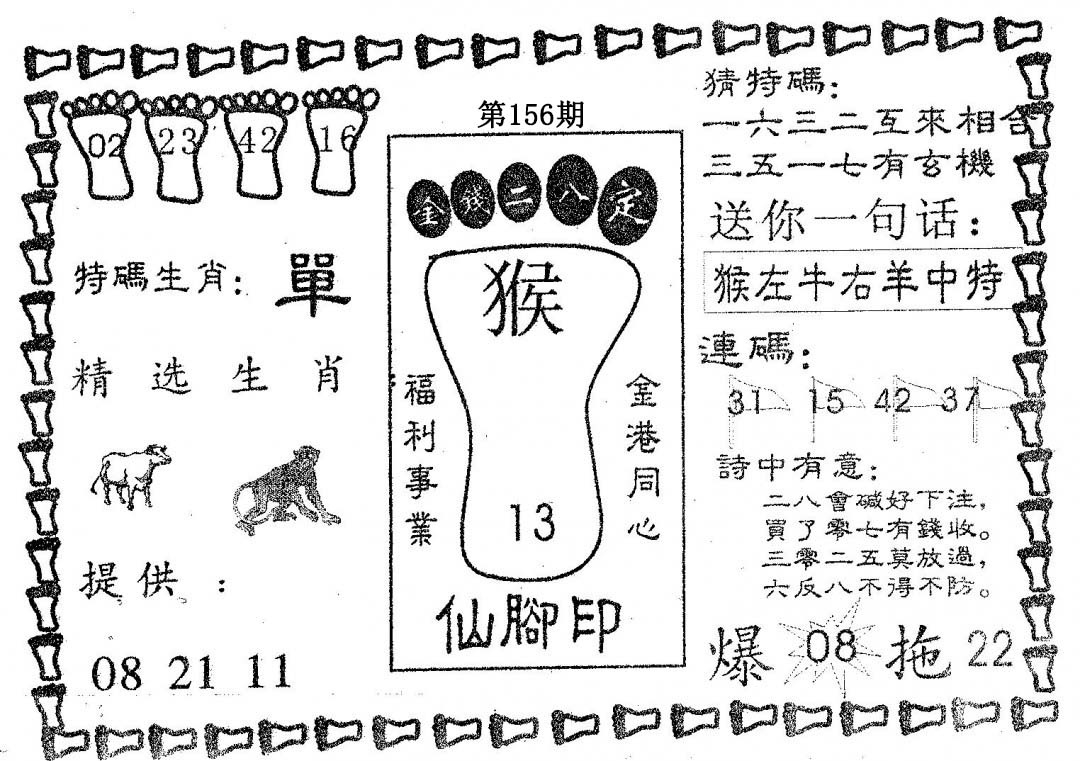 第156期
02 23 42 16
特碼生肖：單
精选生肖
提供：
08 21 11
金錢二八定
猴
福利事業
金港同心
13
仙腳印
猜特碼：
一六三二互來相合
三五一七有玄機
送你一句话：
猴左牛右羊中特
連碼：
31 15 42 37
詩中有意：
二八會碱好下注，
買了零七有錢收。
三零二五莫放過，
六反八不得不防。
爆 08 拖 22